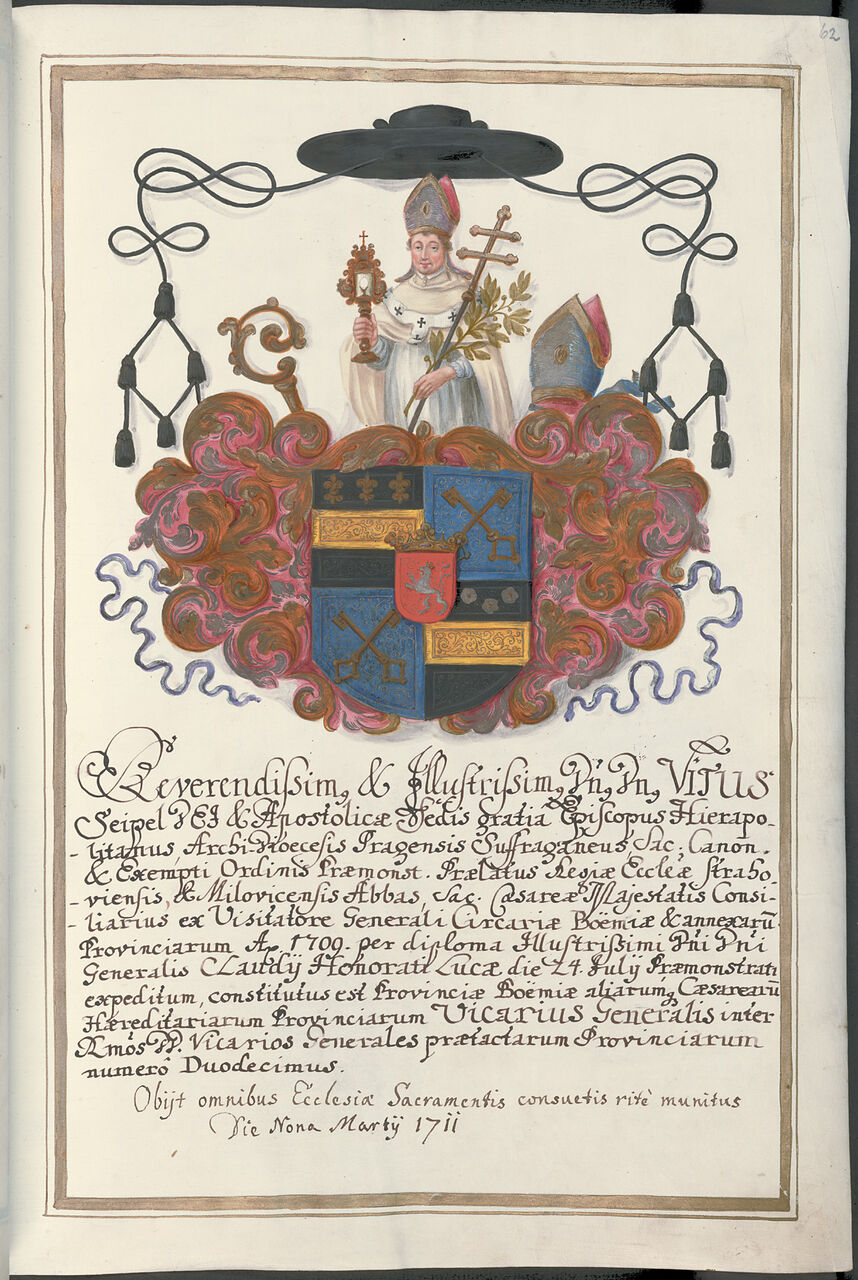 62
Reverendissim, & Illustrissim, Dn, Dn, VITUS
Seipel DEI & Apostolicæ Sedis gratia Episcopus Hierapo-
-litanus, Archi-Dioecesis Pragensis Suffraganeus, Sac: Canon.
& Exempti Ordinis Præmonst. Prælatus Regiæ Eccleæ Straho-
-viensis, & Milovicensis Abbas, Sac. Cæsareæ Majestatis Consi-
-liarius ex Visitatore Generali Circariæ Boëmiæ & annexarū
Provinciarum Aō. 1709. per diploma Illustrissimi Dn̄i Dn̄i
Generalis Claudij Honorati Lucæ die 24. Julij Præmonstrati
expeditum, constitutus est Provinciæ Boëmiæ aliarumq Cæsarearū
Hæreditariarum Provinciarum VICARIUS Generalis inter
Rmos PP. Vicarios Generales præfactarum Provinciarum
numero Duodecimus.
Obijt omnibus Ecclesiæ Sacramentis consuetis ritè munitus
Die Nona Martij 1711